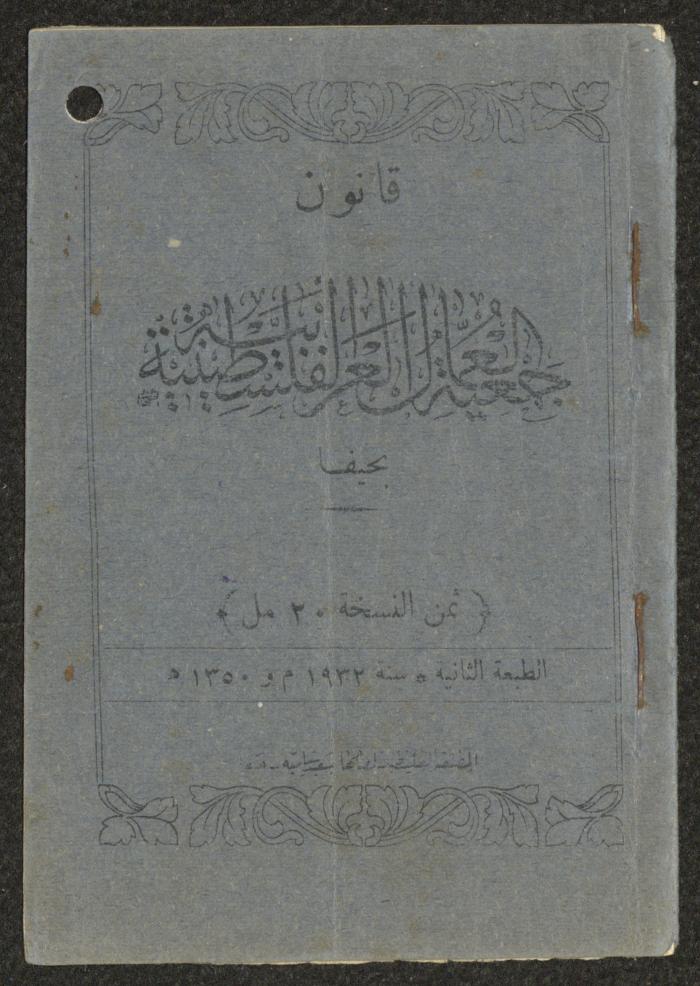 قانون
جمعية العمال العربية الفلسطينية
بحيفا
﴿ ثمن النسخة ٢٠ مل ﴾
الطبعة الثانية * سنة ١٩٣٢ م و ١٣٥٠ ه
المطبعة